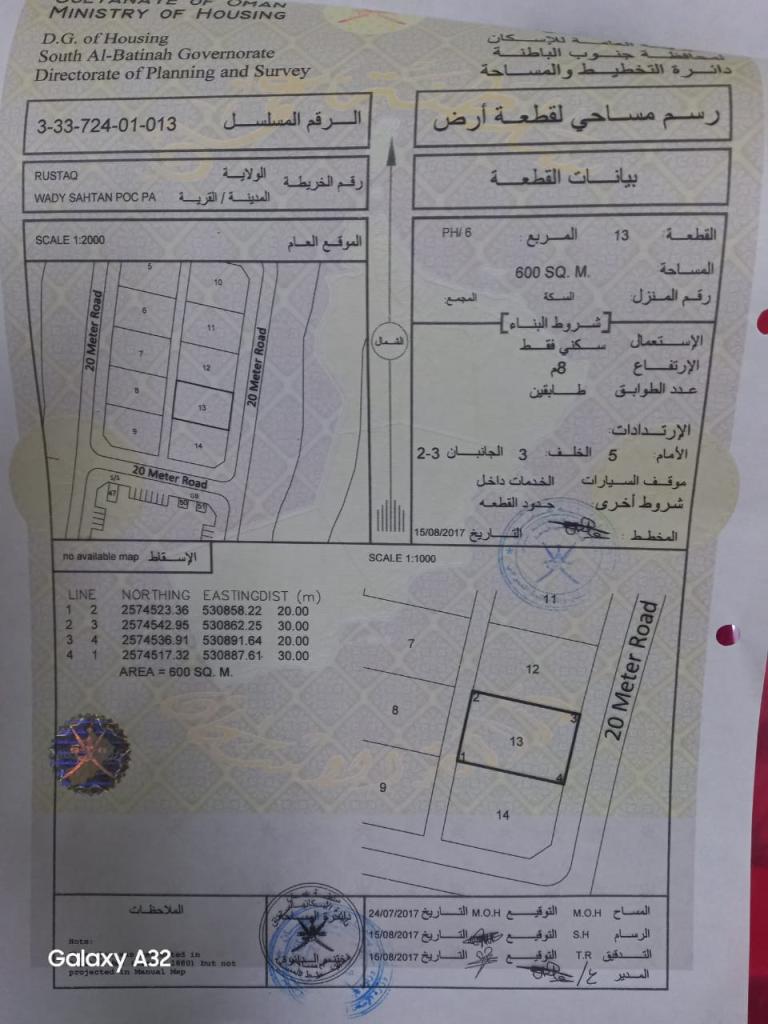 SULTANATE OF OMAN
MINISTRY OF HOUSING
D.G. of Housing
South Al-Batinah Governorate
Directorate of Planning and Survey
لمحافظة جنوب الباطنة
دائرة التخطيط والمساحة
3-33-724-01-013 الرقم المسلسل
رسم مساحي لقطعة أرض
RUSTAQ الولاية
WADY SAHTAN POC PA المدينة / القرية
رقم الخريطة
بيانات القطعة
SCALE 1:2000 الموقع العام
القطعة: 13 المربع: PH/ 6
المساحة 600 SQ. M.
رقم المنزل: السكة المجمع:
شروط البناء
الإستعمال سكني فقط
الإرتفاع 8م
عدد الطوابق طابقين
الإرتدادات:
الأمام: 5 الخلف: 3 الجانبان 3-2
موقف السيارات الخدمات داخل
شروط أخرى: حدود القطعه
المخطط: التاريخ 15/08/2017
الشمال
20 Meter Road
20 Meter Road
20 Meter Road
5
6
7
8
9
10
11
12
13
14
S/S
47
GB
50
51
no available map الإسقاط
SCALE 1:1000
LINE NORTHING EASTING DIST (m)
1 2 2574523.36 530858.22 20.00
2 3 2574542.95 530862.25 30.00
3 4 2574536.91 530891.64 20.00
4 1 2574517.32 530887.61 30.00
AREA = 600 SQ. M.
11
7
12
8
2
3
13
1
4
9
14
20 Meter Road
الملاحظات
Note:
but not
projected in Manual Map
المساح M.O.H التوقيع M.O.H التاريخ 24/07/2017
الرسام S.H التوقيع التاريخ 15/08/2017
التدقيق T.R التوقيع التاريخ 16/08/2017
المدير
دائرة المساحة
Galaxy A32